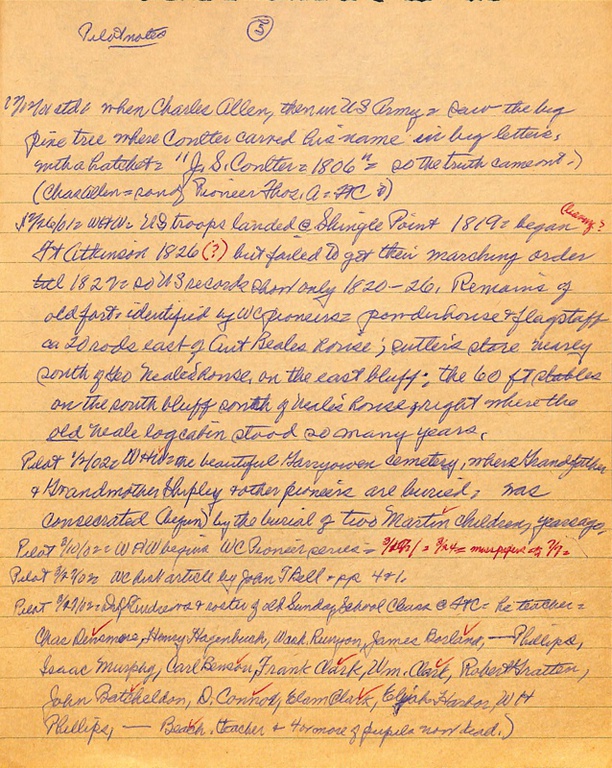 Pilot notes
5
when Charles Allen, then in US Army = saw the big
pine tree where Coulter carved his name in big letters,
with a hatchet = "J. S. Coulter = 1806" = so the truth came out.)
(Chas Allen = son of Pioneer Thos. A = FtC)
26/01 = W&W = US troops landed @ Shingle Point 1819 = began
Ft Atkinson 1826 (?) but failed to get their marching order
till 1827 = so US records show only 1820-26. Remains of
old fort = identified by WC pioneers = powderhouse & flagstaff
ca 20 rods east of Curt Beales house; sutler's store nearly
south of Neale's house, on the east bluff; the 60 ft stables
on the south bluff south of Neale's house & right where the
old Neale log cabin stood so many years.
Pilot 1/2/02 = W&W = the beautiful Garryowen cemetery, where Grandfather
& Grandmother Shipley & other pioneers are buried; was
consecrated (begun) by the burial of two Martin children, years ago.
Pilot /10/02 = W&W begins WC Pioneer series =
Pilot 3/27/02 = WC article by John T Bell = pp 4 & 1.
Pilot roster of old Sunday School Class @ FtC = he teacher =
Chas Dinsmore, Henry Hagenbuch, Wash Runyon, James Borland, — Phillips,
Isaac Murphy, Carl Benson, Frank Clark, Wm. Clark, Robert Gratten,
John Batcheldon, D. Connor, Elam Clark, Elijah Harbor, WH
Phillips, — Beach. teacher & 4 or more of pupils now dead.)